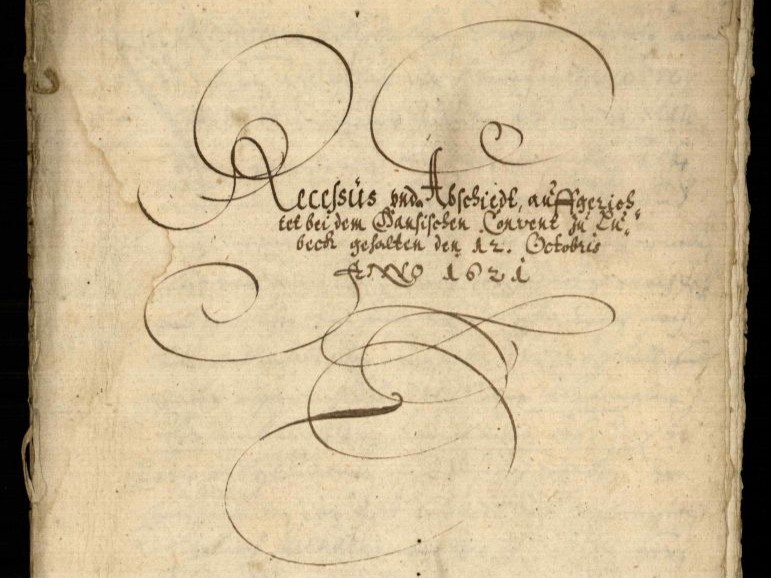 Recessus vnd Abschiedt, auffgerich-
tet bei dem Hansischen Convent zu Lü-
beck gehalten den 12. Octobris
ANNO 1621